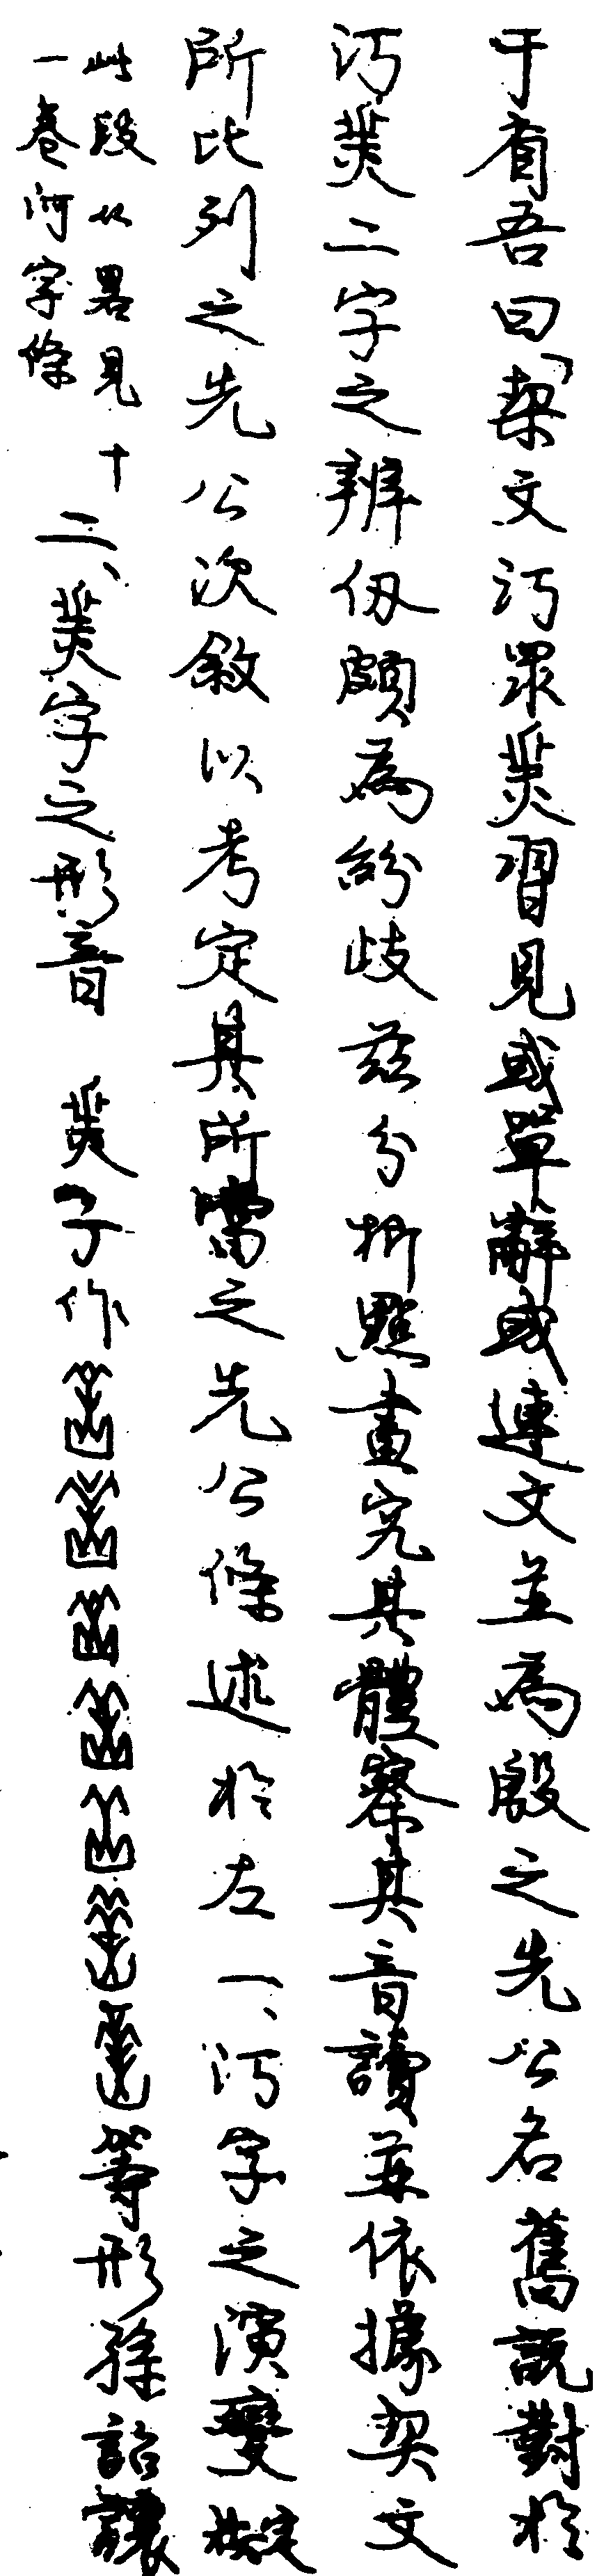 于省吾曰「栔文沔眔𦍌習見或單辭或連文並為殷之先公名舊說對於
沔𦍌二字之辨仞頗為紛歧茲分析點畫究其體察其音讀並依據契文
所比列之先公次敘以考定其所當之先公條述於左一、沔字之演變按定
此段从畧見十
一卷河字條
二、𦍌字之形音 𦍌子作等形孫詒讓